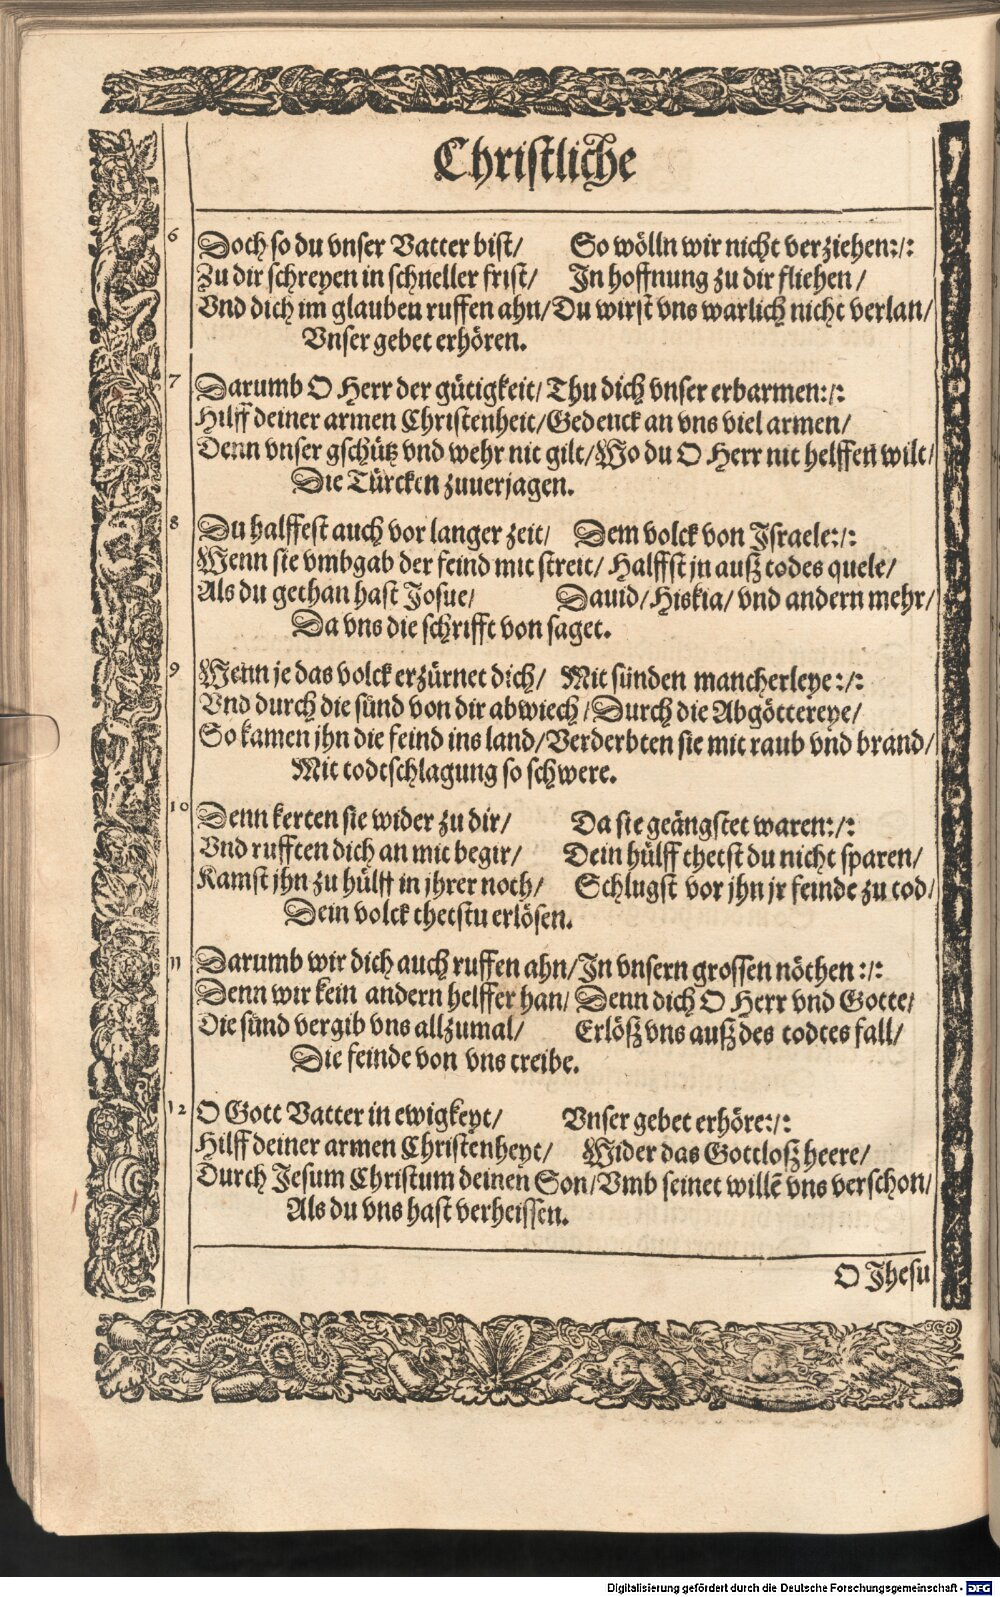 Christliche
6 Doch so du vnser Vatter bist/ So wölln wir nicht verziehen:/:
Zu dir schreyen in schneller frist/ In hoffnung zu dir fliehen/
Vnd dich im glauben ruffen ahn/ Du wirst vns warlich nicht verlan/
Vnser gebet erhören.
7 Darumb O Herr der gütigkeit/ Thu dich vnser erbarmen:/:
Hilff deiner armen Christenheit/ Gedenck an vns viel armen/
Denn vnser gschütz vnd wehr nit gilt/ Wo du O Herr nit helffen wilt/
Die Türcken zuuerjagen.
8 Du halffest auch vor langer zeit/ Dem volck von Israele:/:
Wenn sie vmbgab der feind mit streit/ Halffst jn auß todes quele/
Als du gethan hast Josue/ Dauid/ Hiskia/ vnd andern mehr/
Da vns die schrifft von saget.
9 Wenn je das volck erzürnet dich/ Mit sünden mancherleye:/:
Vnd durch die sünd von dir abwiech/ Durch die Abgöttereye/
So kamen jhn die feind ins land/ Verderbten sie mit raub vnd brand/
Mit todtschlagung so schwere.
10 Denn kerten sie wider zu dir/ Da sie geängstet waren:/:
Vnd rufften dich an mit begir/ Dein hülff thetst du nicht sparen/
Kamst jhn zu hülff in jhrer noth/ Schlugst vor jhn jr feinde zu tod/
Dein volck thetstu erlösen.
11 Darumb wir dich auch ruffen ahn/ In vnsern grossen nöthen:/:
Denn wir kein andern helffer han/ Denn dich O Herr vnd Gotte/
Die sünd vergib vns allzumal/ Erlöß vns auß des todtes fall/
Die feinde von vns treibe.
12 O Gott Vatter in ewigkeyt/ Vnser gebet erhöre:/:
Hilff deiner armen Christenheyt/ Wider das Gottloß heere/
Durch Jesum Christum deinen Son/ Vmb seinet willē vns verschon/
Als du vns hast verheissen.
O Jhesu
Digitalisierung gefördert durch die Deutsche Forschungsgemeinschaft - DFG